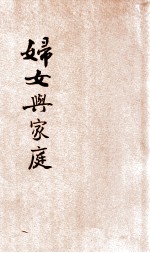 婦女與家庭